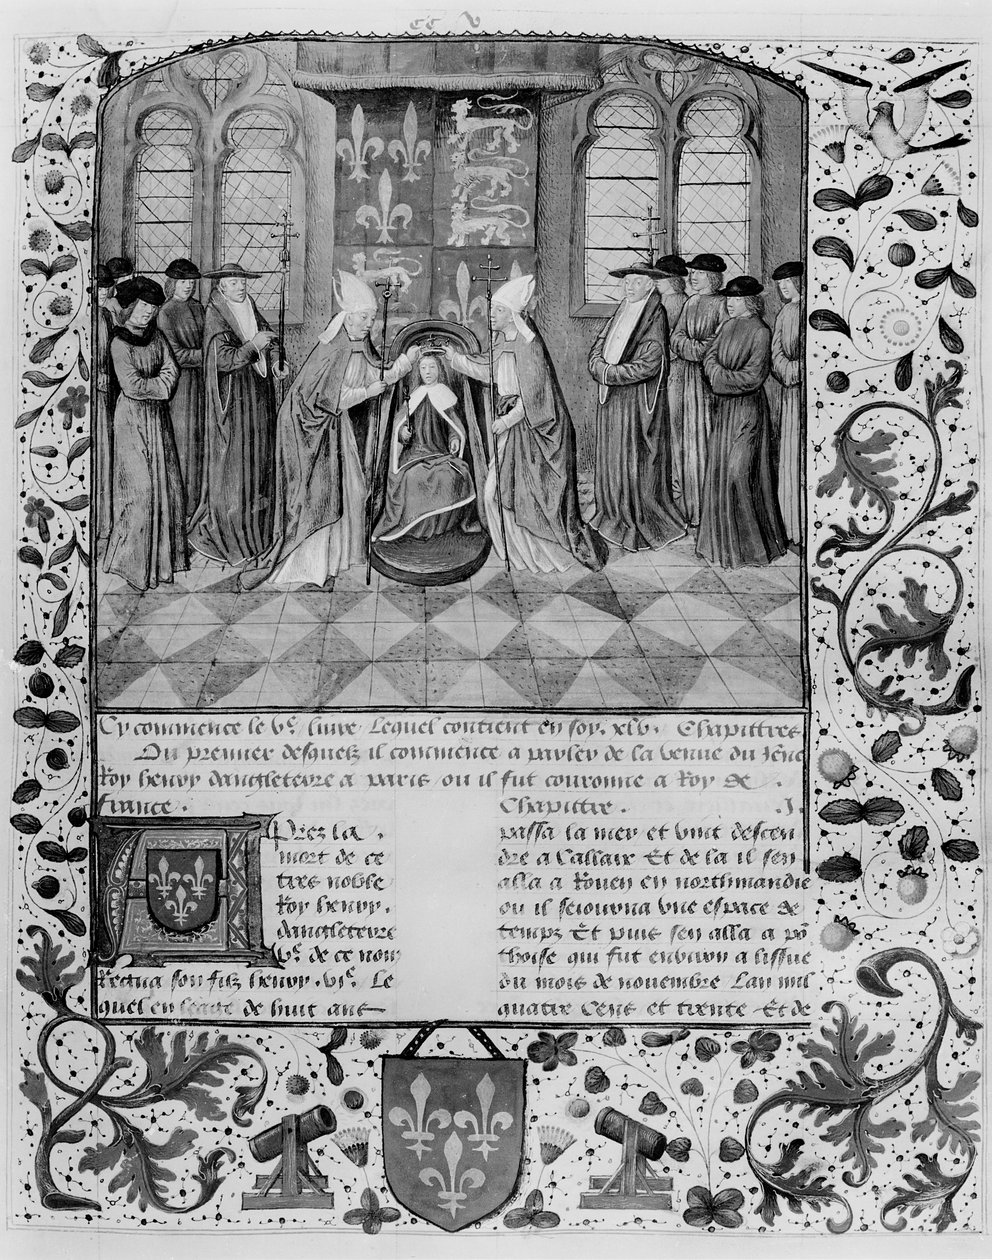 Cy commence le Ve. livre Lequel contient en soy. xlv. Chapittres
Du premier desquelz il commence a parler de la venue du Jêne
Roy henry dangleterre a paris ou il fut couronne a Roy de
france.
Chapittre. I.
APrez la
mort de ce
tres noble
Roy henry.
dangleterre
Ve. de ce nom
Regna son filz henry. vie. Le
quel en leage de huit ans
passa la mer et vint descen
dre a Callaix Et de la il sen
alla a Rouen en northmandie
ou il seiourna vne espace de
temps Et puis sen alla a pô
thoise qui fut enuiron a lissue
du mois de nouembre Lan mil
quatre Cens et trente Et de